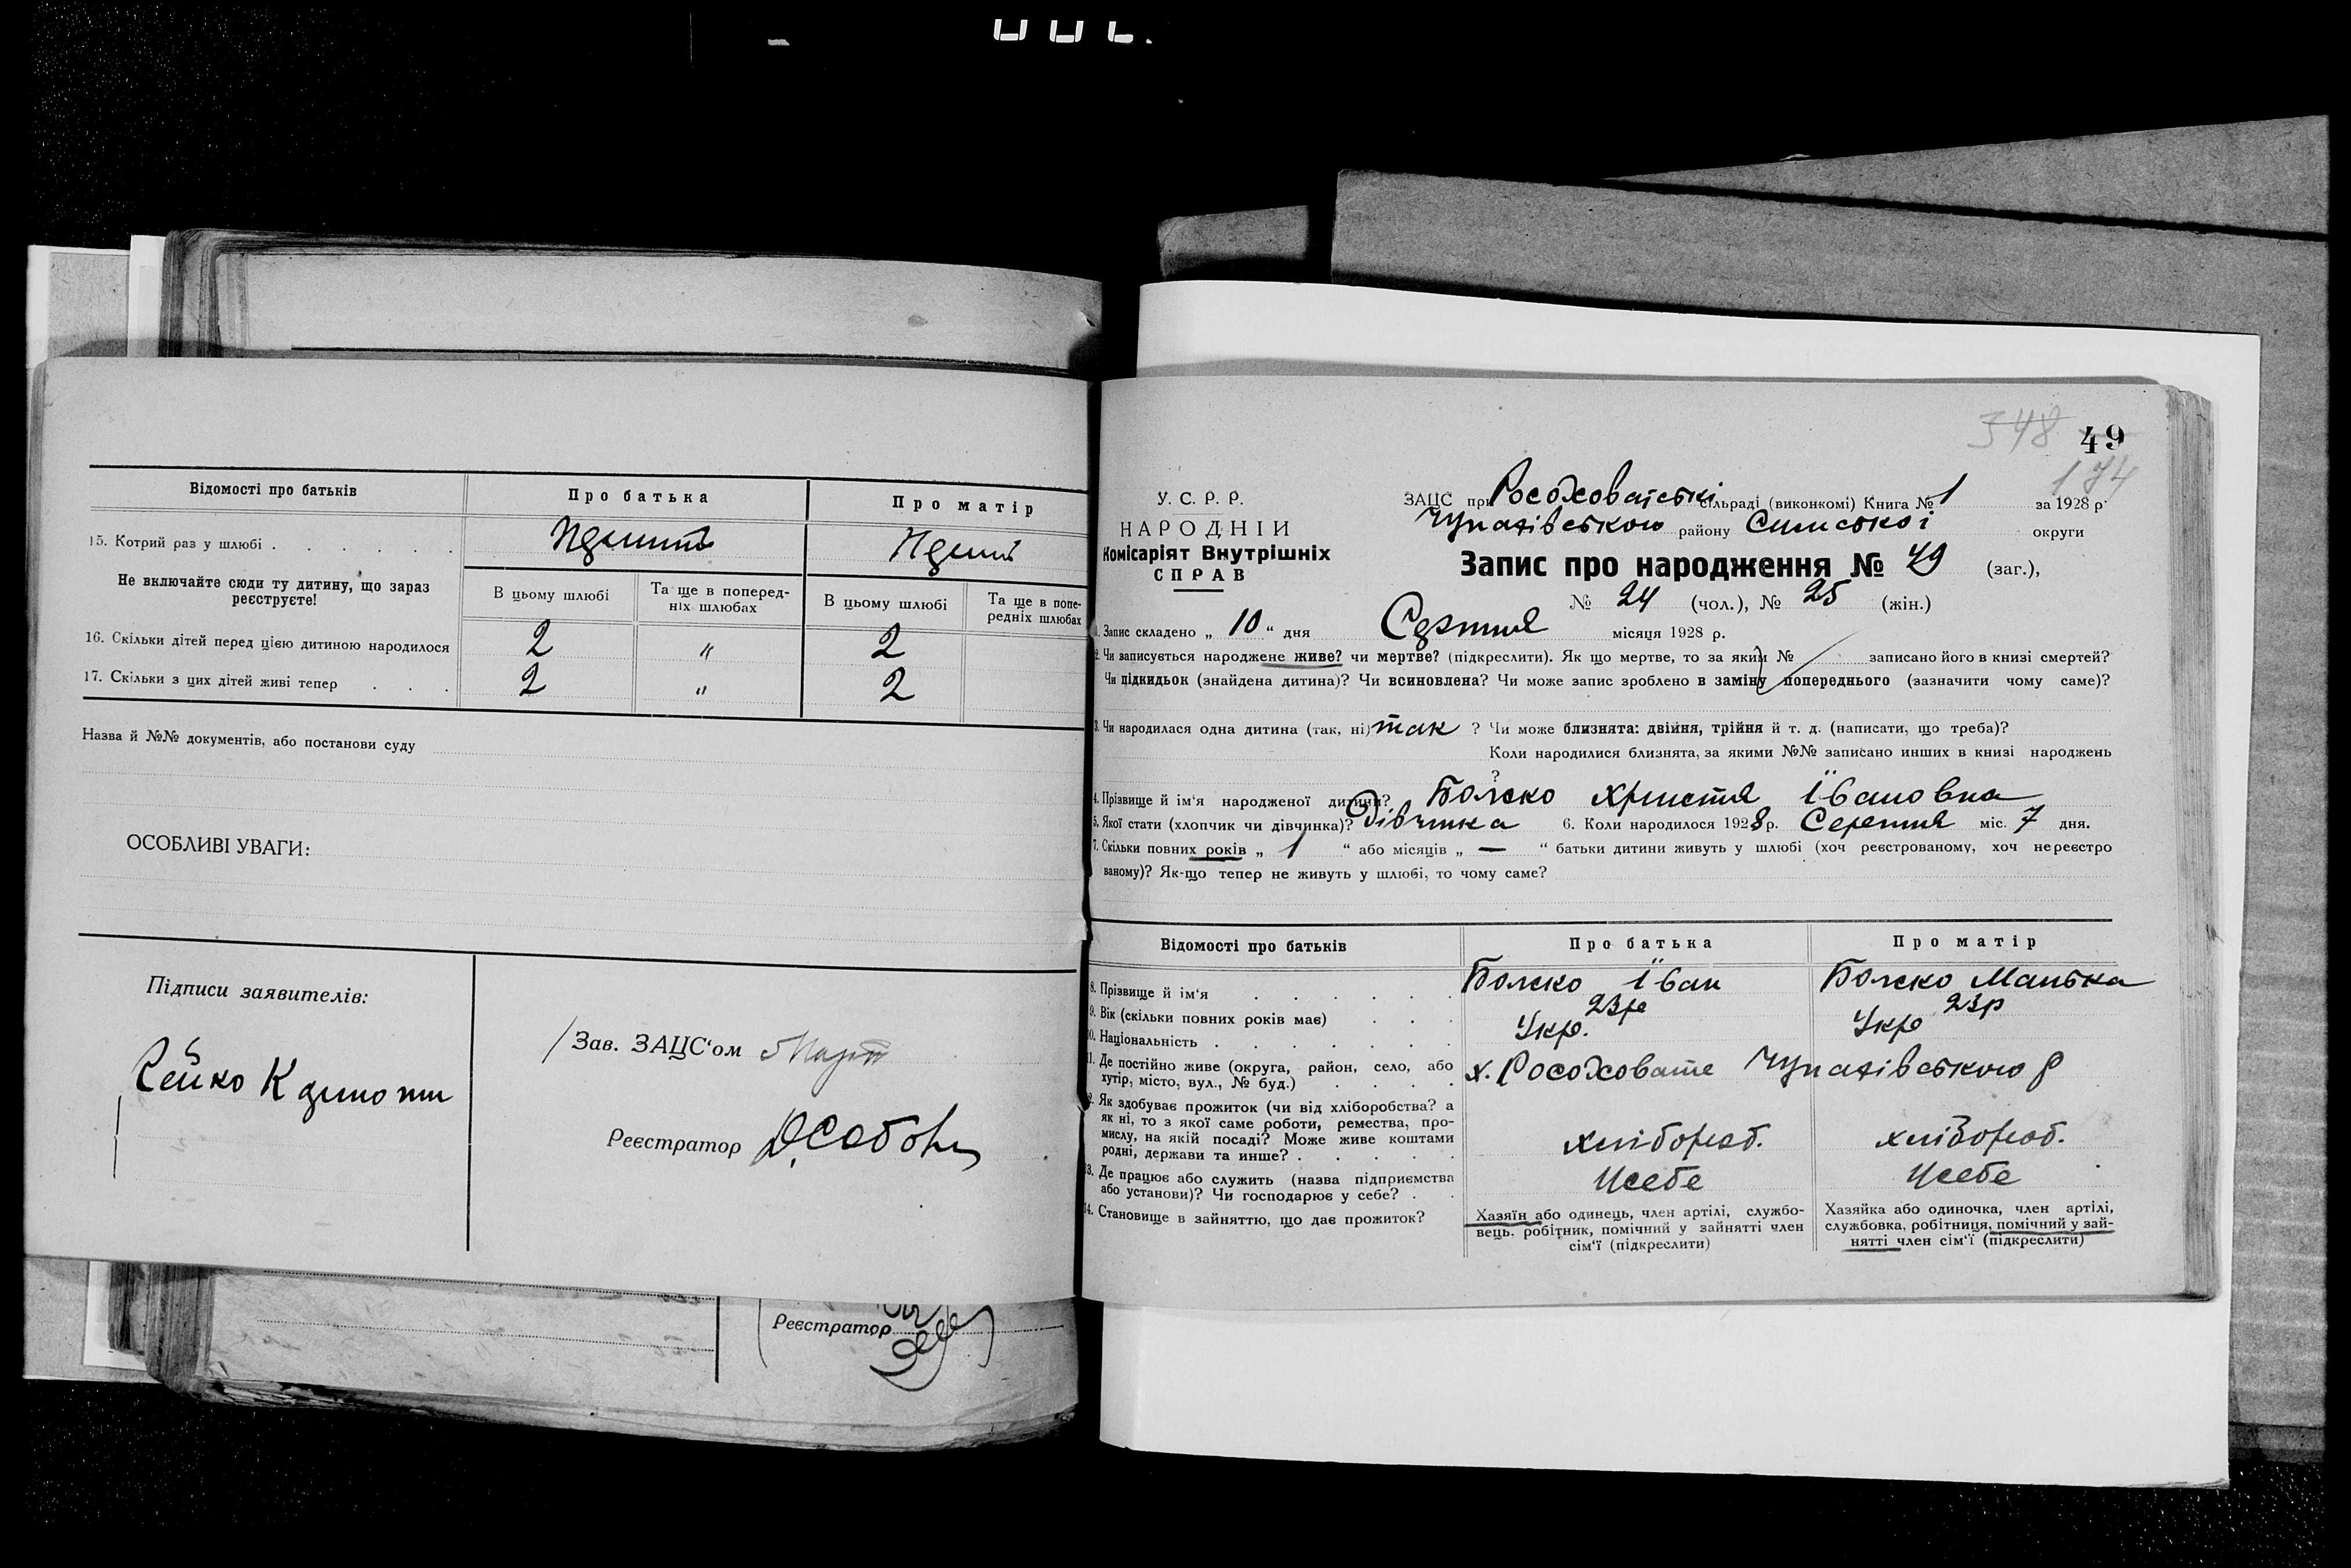 Відомості про батьків
Про батька
Про матір
15. Котрий раз у шлюбі . . . . . .
Не включайте сюди ту дитину, що зараз
реєструєте!
В цьому шлюбі
Та ще в поперед-
ніх шлюбах
В цьому шлюбі
Та ще в попе-
редніх шлюбах
16. Скільки дітей перед цією дитиною народилося 2 " 2
17. Скільки з цих дітей живі тепер . . . 2 " 2
Назва й №№ документів, або постанови суду
ОСОБЛИВІ УВАГИ:
Підписи заявителів:
Зав. ЗАЦС'ом
Реєстратор
Реєстратор
348
49
174
У. С. Р. Р.
НАРОДНІЙ
Комісаріят Внутрішніх
СПРАВ
ЗАЦС при Росоховатські сільраді (виконкомі) Книга № 1 за 1928 р.
району Сумської округи
Запис про народження № 49 (заг.),
№ 24 (чол.), № 25 (жін.)
1. Запис складено „ 10 “ дня Серпня місяця 1928 р.
2. Чи записується народжене живе? чи мертве? (підкреслити). Як що мертве, то за яким № записано його в книзі смертей?
Чи підкидьок (знайдена дитина)? Чи всиновлена? Чи може запис зроблено в заміну попереднього (зазначити чому саме)?
3. Чи народилася одна дитина (так, ні) так ? Чи може близнята: двійня, трійня й т. д. (написати, що треба)?
Коли народилися близнята, за якими №№ записано инших в книзі народжень
?
4. Прізвище й ім'я народженої дитини? Христя Івановна
5. Якої стати (хлопчик чи дівчинка)? Дівчинка 6. Коли народилося 1928 р. Серпня міс. 7 дня.
7. Скільки повних років „ 1 “ або місяців „ — “ батьки дитини живуть у шлюбі (хоч реєстрованому, хоч нереєстро
ваному)? Як-що тепер не живуть у шлюбі, то чому саме?
Відомості про батьків
Про батька
Про матір
8. Прізвище й ім'я . . . . . . Іван Манька
9. Вік (скільки повних років має) . . . 23р 23р
10. Національність . . . . . . . Укр. Укр
11. Де постійно живе (округа, район, село, або
хутір, місто, вул., № буд.) . . . . х. Росоховате
12. Як здобуває прожиток (чи від хліборобства? а
як ні, то з якої саме роботи, ремества, про-
мислу, на якій посаді? Може живе коштами
родні, держави та инше? . . . . .
хлібороб.
хлібороб.
13. Де працює або служить (назва підприємства
або установи)? Чи господарює у себе? . .
Усебе
Усебе
14. Становище в зайняттю, що дає прожиток?
Хазяїн або одинець, член артілі, службо-
вець, робітник, помічний у зайнятті член
сім'ї (підкреслити)
Хазяйка або одиночка, член артілі,
службовка, робітниця, помічний у зай-
нятті член сім'ї (підкреслити)